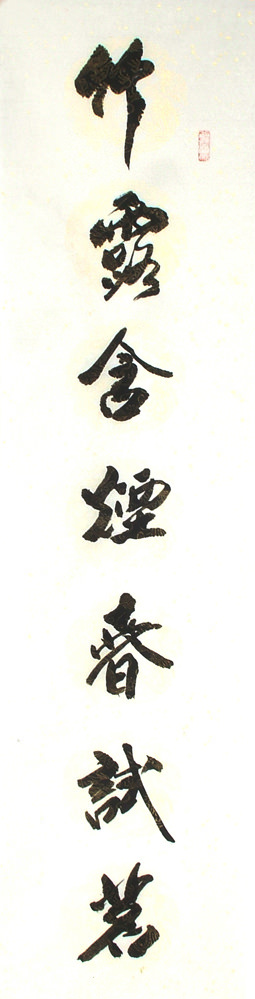 竹露含煙春試茗